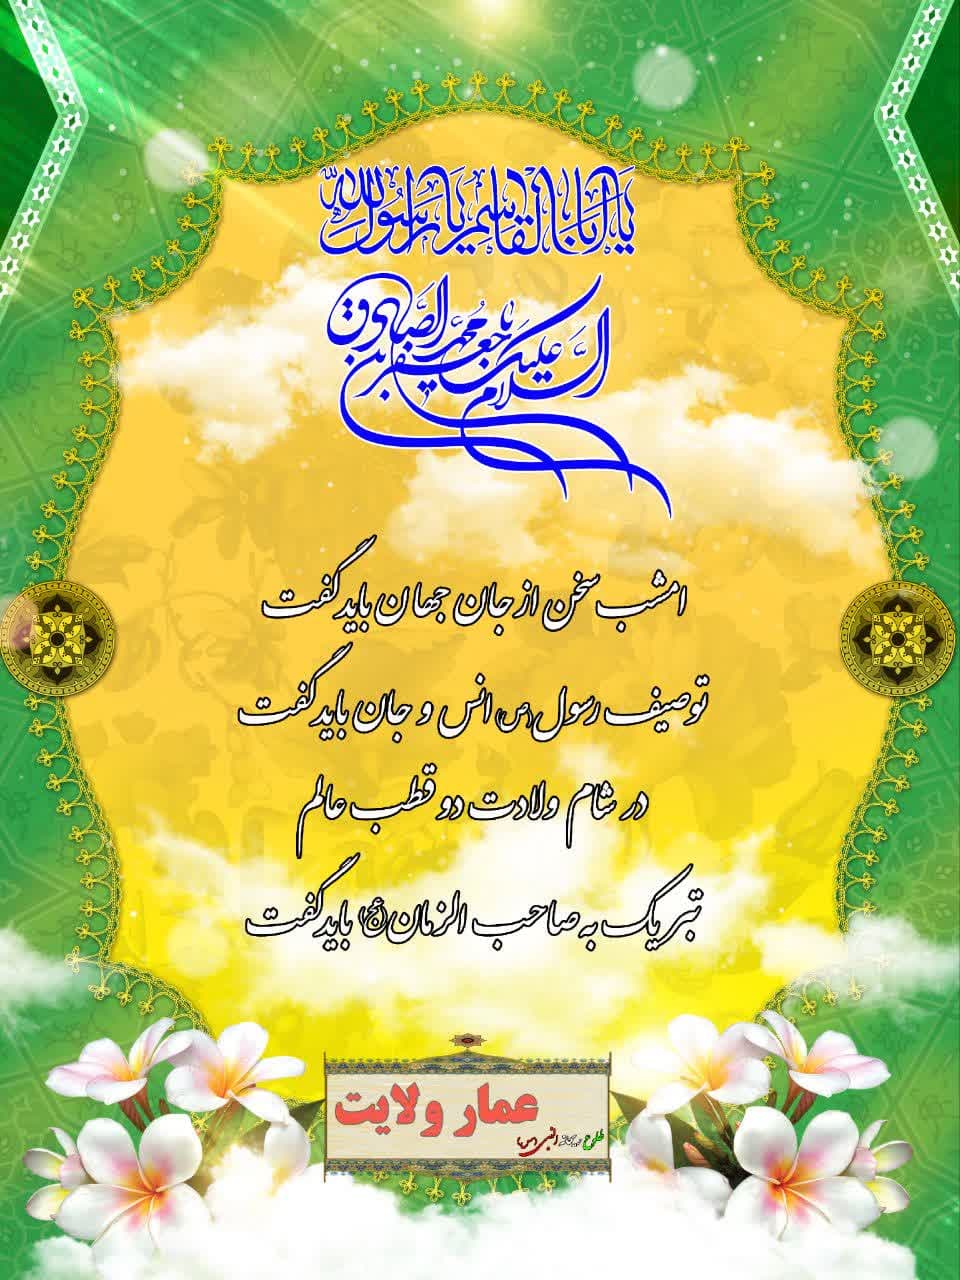 یا اباالقاسم یا رسول الله
السلام علیک یا جعفر بن محمد الصادق
امشب سخن از جان جهان باید گفت
توصیف رسول (ص) انس و جان باید گفت
در شام ولادت دو قطب عالم
تبریک به صاحب الزمان (عج) باید گفت
عمار ولایت
طلوع ریحانه النبی (س)